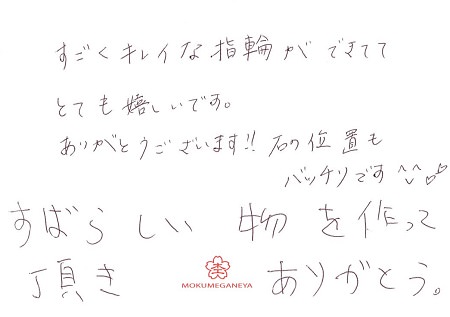 すごくキレイな指輪ができてて
とても嬉しいです。
ありがとうございます!! 石の位置も
バッチリです^^
すばらしい 物を作って
頂き ありがとう。
MOKUMEGANEYA